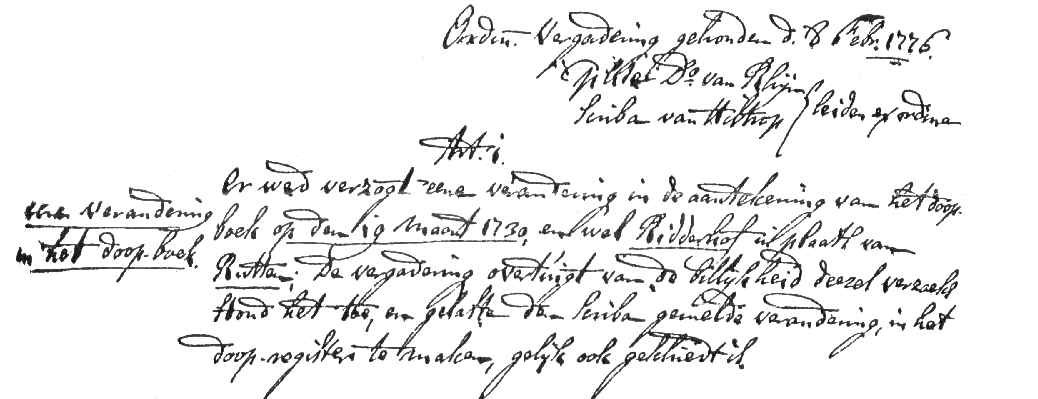 Ordin. Vergadering gehouden d. 8 Febr. 1776.
Do. van Rhijn
Scriba van Hiltrop } beiden ex ordine
Art: 1.
Er werd verzogt eene verandering in de aantekening van het doop-
eene verandering
boek op den 19 maart 1730, en wel Ridderhof in plaats van
in het doop-boek.
Rutten; De vergadering overtuigt van de billijkheid deezes verzoeks
stond het toe, en gelaste den Scriba gemelde verandering, in het
doop-register te maken, gelijk ook geschiedt is.